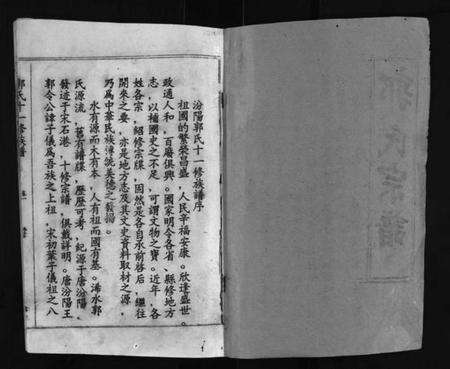 汾陽郭氏十一修族譜序
祖國的繁榮昌盛，人民幸福安康。欣逢盛世。
政通人和，百廢俱興。國家明令各省、縣修地方
志，以補國史之不足，可謂文物之寶。近年，各
姓各宗，紹修宗牒，固然是各自承前啓后，繼往
開來之要，亦是地方志及其文史資料取材之源，
乃爲中華民族傳統美德之發揚。
水有源而木有本，人有祖而國有基。浠水郭
氏源流，舊有譜牒，歷歷可考，紀源于唐汾陽，
發迹于宋石港，十修宗譜，俱載詳明。唐汾陽王
郭令公諱子儀爲吾族之上祖，宋初葉子儀祖之八
郭氏十一修族譜
卷首
郭氏宗譜